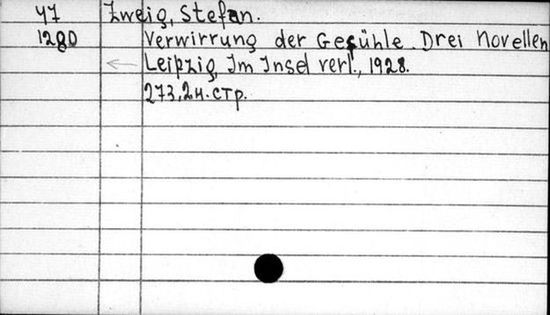 47 Zweig, Stefan.
1280 Verwirrung der Gefühle. Drei Novellen
Leipzig, Im Insel verl., 1928.
273, 2н. стр.